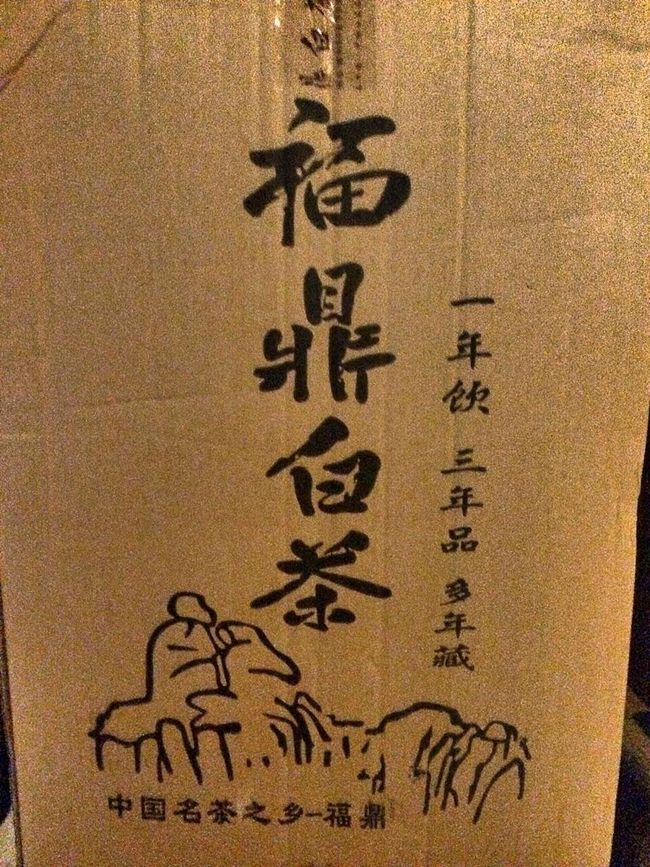 福鼎白茶
一年饮 三年品 多年藏
中国名茶之乡—福鼎